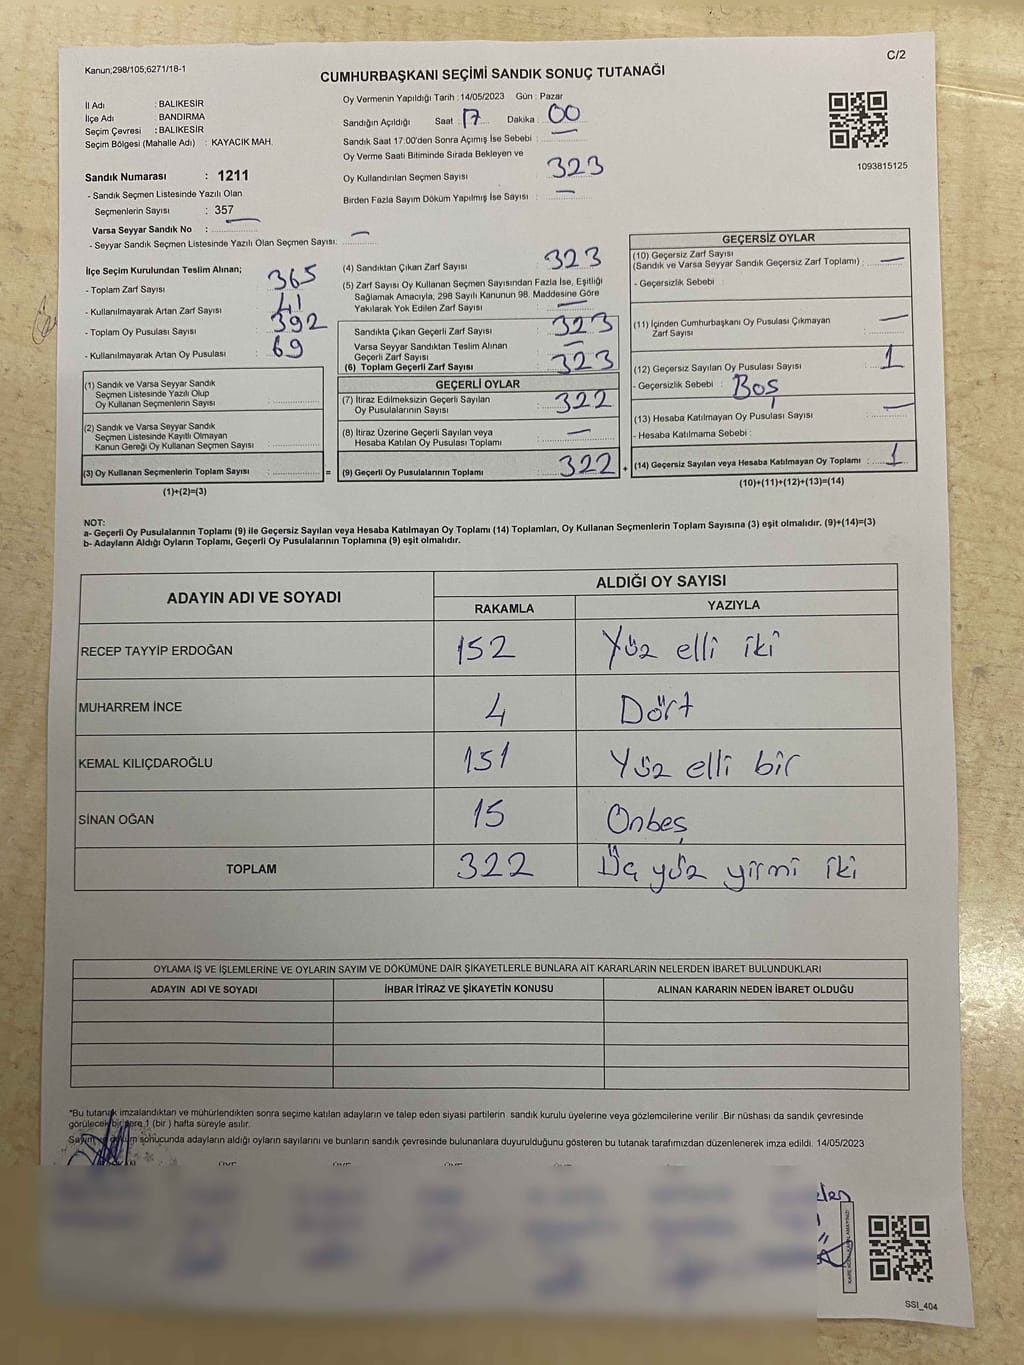 Kanun;298/105;6271/18-1
C/2
CUMHURBAŞKANI SEÇİMİ SANDIK SONUÇ TUTANAĞI
İl Adı : BALIKESİR
İlçe Adı : BANDIRMA
Seçim Çevresi : BALIKESİR
Seçim Bölgesi (Mahalle Adı) : KAYACIK MAH.
Sandık Numarası : 1211
- Sandık Seçmen Listesinde Yazılı Olan
Seçmenlerin Sayısı : 357
Varsa Seyyar Sandık No : —
- Seyyar Sandık Seçmen Listesinde Yazılı Olan Seçmen Sayısı: —
Oy Vermenin Yapıldığı Tarih : 14/05/2023 Gün : Pazar
Sandığın Açıldığı Saat : 17 Dakika : 00
Sandık Saat 17:00'den Sonra Açımış İse Sebebi : —
Oy Verme Saati Bitiminde Sırada Bekleyen ve
Oy Kullandırılan Seçmen Sayısı : 323
Birden Fazla Sayım Döküm Yapılmış İse Sayısı : —
1093815125
İlçe Seçim Kurulundan Teslim Alınan;
- Toplam Zarf Sayısı : 365
- Kullanılmayarak Artan Zarf Sayısı : 41
- Toplam Oy Pusulası Sayısı : 392
- Kullanılmayarak Artan Oy Pusulası : 69
(1) Sandık ve Varsa Seyyar Sandık
Seçmen Listesinde Yazılı Olup
Oy Kullanan Seçmenlerin Sayısı :
(2) Sandık ve Varsa Seyyar Sandık
Seçmen Listesinde Kayıtlı Olmayan
Kanun Gereği Oy Kullanan Seçmen Sayısı :
(3) Oy Kullanan Seçmenlerin Toplam Sayısı : =
(1)+(2)=(3)
(4) Sandıktan Çıkan Zarf Sayısı : 323
(5) Zarf Sayısı Oy Kullanan Seçmen Sayısından Fazla İse, Eşitliği
Sağlamak Amacıyla, 298 Sayılı Kanunun 98. Maddesine Göre
Yakılarak Yok Edilen Zarf Sayısı : —
Sandıkta Çıkan Geçerli Zarf Sayısı : 323
Varsa Seyyar Sandıktan Teslim Alınan
Geçerli Zarf Sayısı : —
(6) Toplam Geçerli Zarf Sayısı : 323
GEÇERLİ OYLAR
(7) İtiraz Edilmeksizin Geçerli Sayılan
Oy Pusulalarının Sayısı : 322
(8) İtiraz Üzerine Geçerli Sayılan veya
Hesaba Katılan Oy Pusulası Toplamı : —
(9) Geçerli Oy Pusulalarının Toplamı : 322 +
GEÇERSİZ OYLAR
(10) Geçersiz Zarf Sayısı
(Sandık ve Varsa Seyyar Sandık Geçersiz Zarf Toplamı) : —
- Geçersizlik Sebebi :
(11) İçinden Cumhurbaşkanı Oy Pusulası Çıkmayan
Zarf Sayısı : —
(12) Geçersiz Sayılan Oy Pusulası Sayısı : 1
- Geçersizlik Sebebi : Boş
(13) Hesaba Katılmayan Oy Pusulası Sayısı : —
- Hesaba Katılmama Sebebi :
(14) Geçersiz Sayılan veya Hesaba Katılmayan Oy Toplamı : 1
(10)+(11)+(12)+(13)=(14)
NOT:
a- Geçerli Oy Pusulalarının Toplamı (9) ile Geçersiz Sayılan veya Hesaba Katılmayan Oy Toplamı (14) Toplamları, Oy Kullanan Seçmenlerin Toplam Sayısına (3) eşit olmalıdır. (9)+(14)=(3)
b- Adayların Aldığı Oyların Toplamı, Geçerli Oy Pusulalarının Toplamına (9) eşit olmalıdır.
ADAYIN ADI VE SOYADI
ALDIĞI OY SAYISI
RAKAMLA YAZIYLA
RECEP TAYYİP ERDOĞAN 152 Yüz elli iki
MUHARREM İNCE 4 Dört
KEMAL KILIÇDAROĞLU 151 Yüz elli bir
SİNAN OĞAN 15 Onbeş
TOPLAM 322 Üç yüz yirmi iki
OYLAMA İŞ VE İŞLEMLERİNE VE OYLARIN SAYIM VE DÖKÜMÜNE DAİR ŞİKAYETLERLE BUNLARA AİT KARARLARIN NELERDEN İBARET BULUNDUKLARI
ADAYIN ADI VE SOYADI İHBAR İTİRAZ VE ŞİKAYETİN KONUSU ALINAN KARARIN NEDEN İBARET OLDUĞU
*Bu tutanak imzalandıktan ve mühürlendikten sonra seçime katılan adayların ve talep eden siyasi partilerin sandık kurulu üyelerine veya gözlemcilerine verilir .Bir nüshası da sandık çevresinde
görülecek bir yere 1 (bir ) hafta süreyle asılır.
Sayım ve döküm sonucunda adayların aldığı oyların sayılarını ve bunların sandık çevresinde bulunanlara duyurulduğunu gösteren bu tutanak tarafımızdan düzenlenerek imza edildi. 14/05/2023
SSI_404